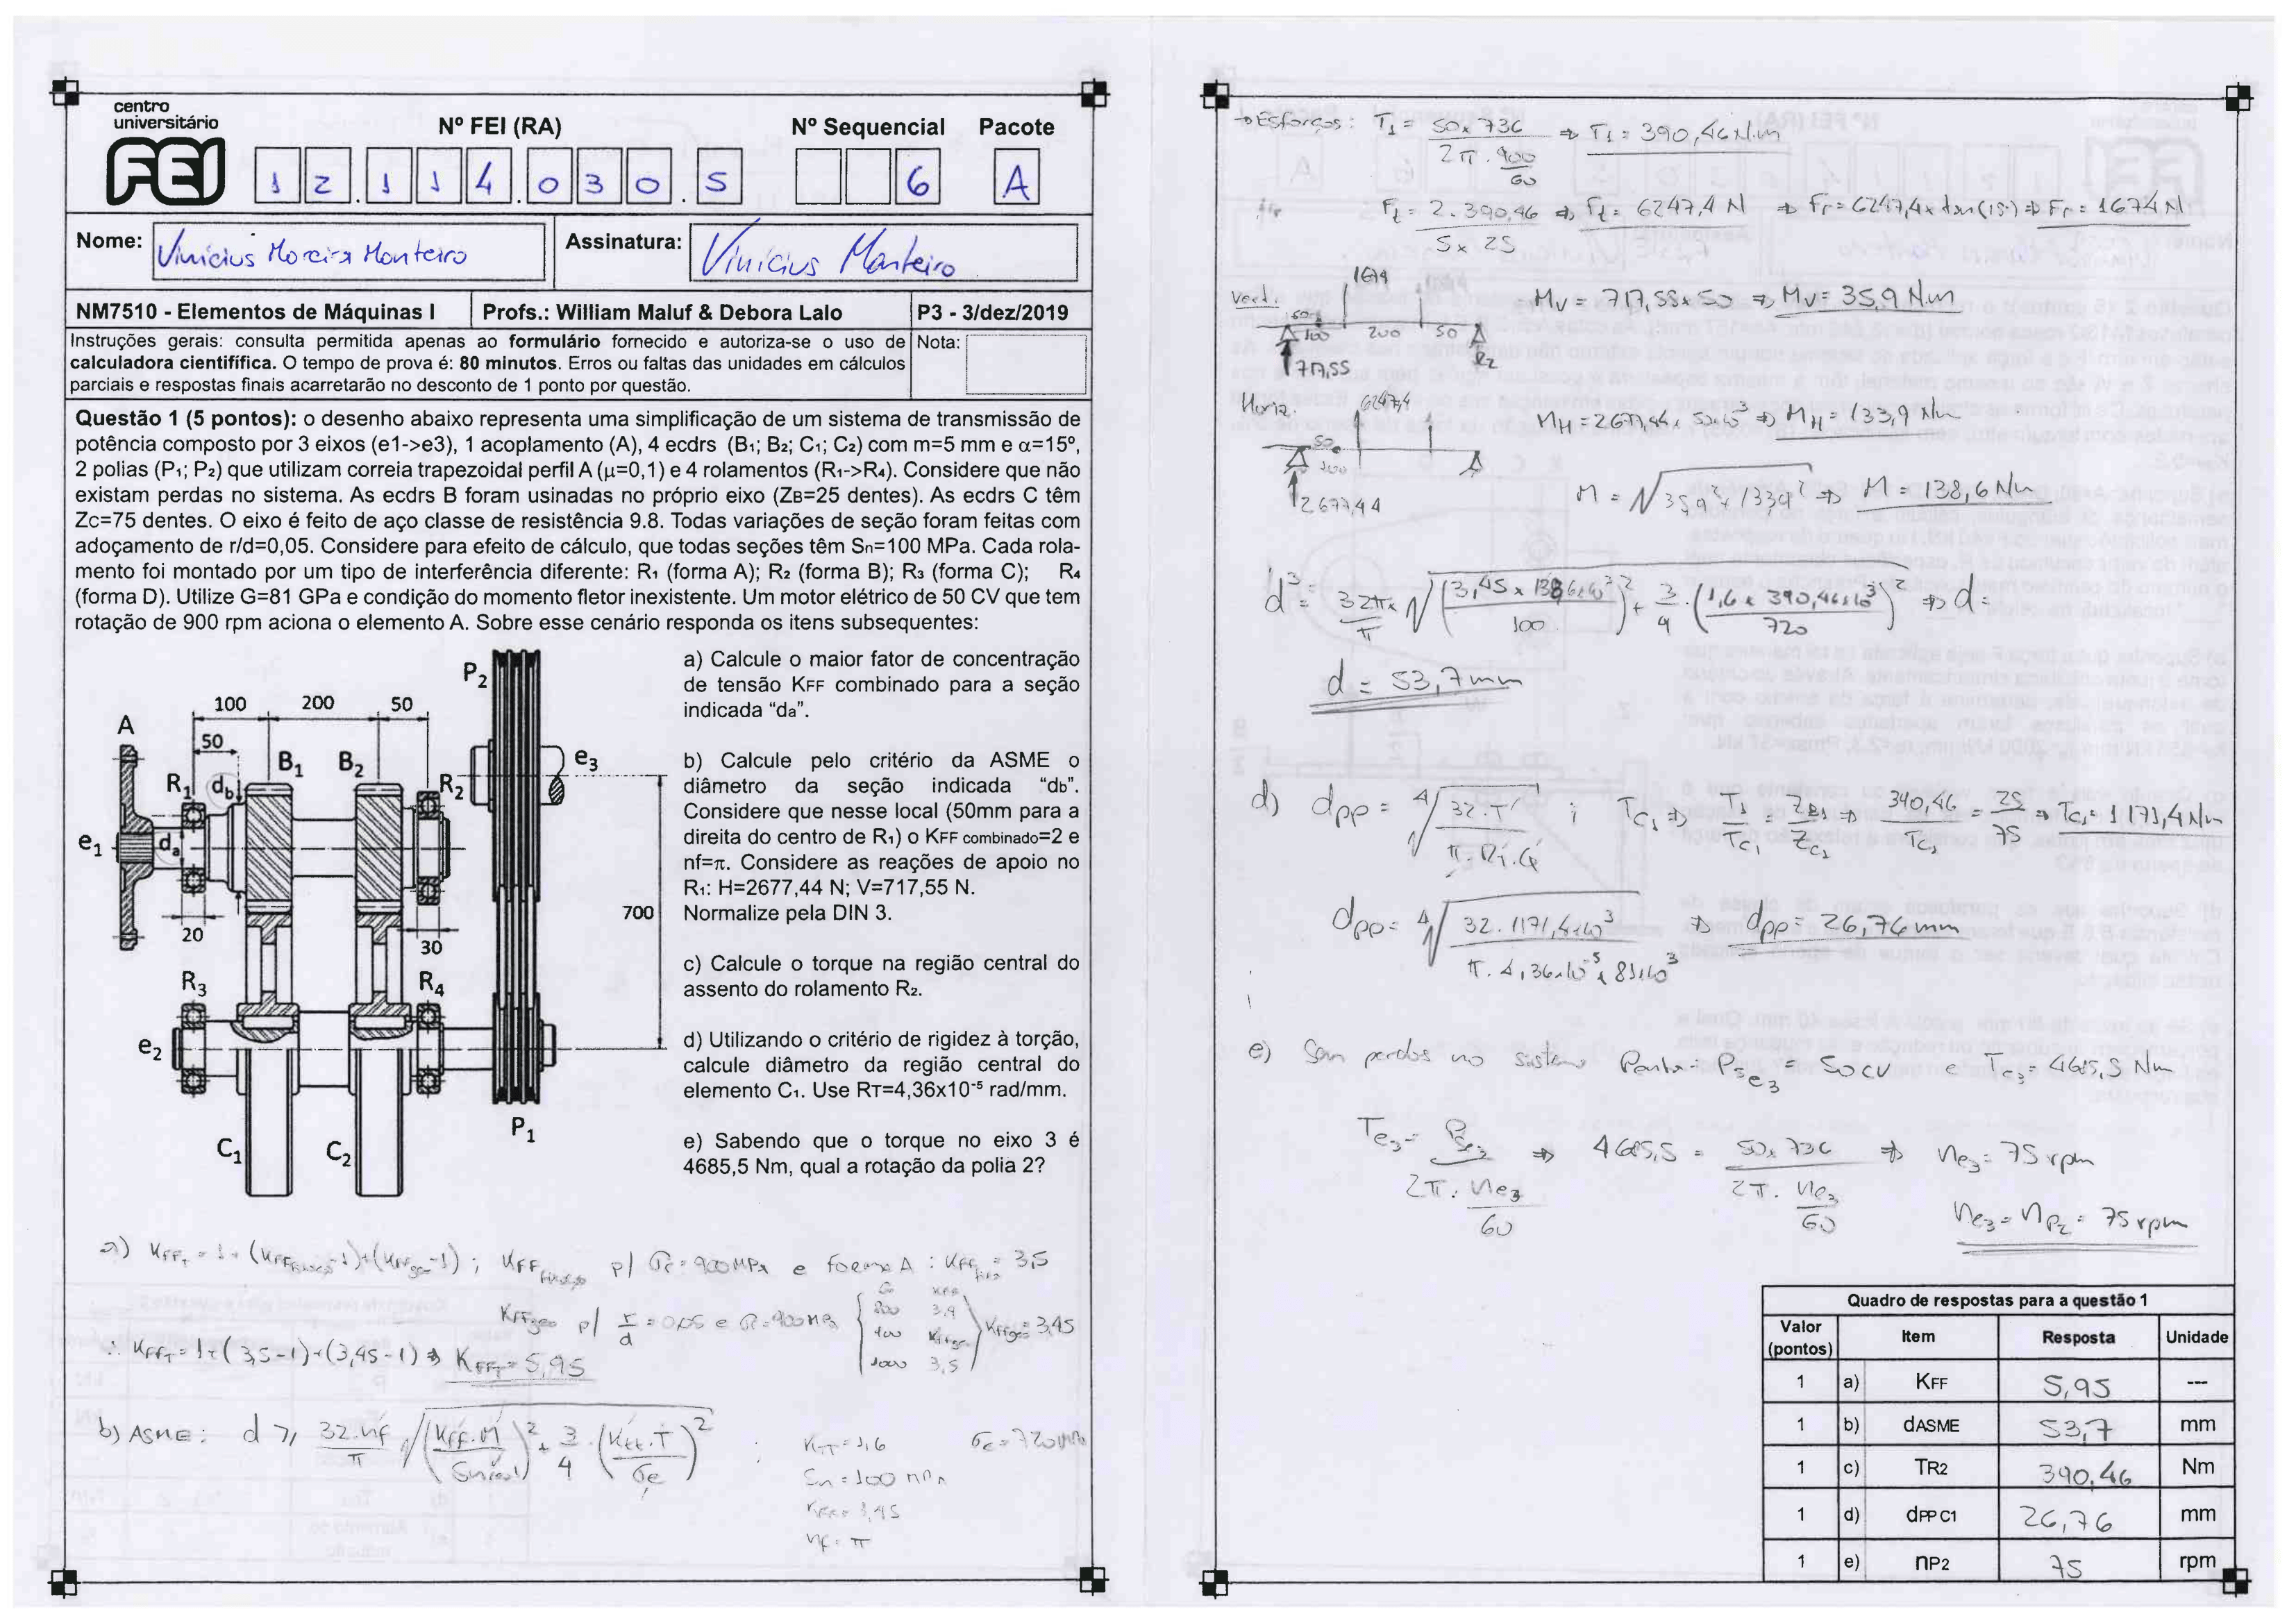 centro
universitário
FEI
Nº FEI (RA)
Nº Sequencial
Pacote
1 2 . 1 1 4 . 0 3 0 . 5
6
A
Nome: Vinicius Moreira Monteiro
Assinatura: Vinicius Monteiro
NM7510 - Elementos de Máquinas I
Profs.: William Maluf & Debora Lalo
P3 - 3/dez/2019
Instruções gerais: consulta permitida apenas ao formulário fornecido e autoriza-se o uso de
calculadora cientifífica. O tempo de prova é: 80 minutos. Erros ou faltas das unidades em cálculos
parciais e respostas finais acarretarão no desconto de 1 ponto por questão.
Nota:
Questão 1 (5 pontos): o desenho abaixo representa uma simplificação de um sistema de transmissão de
potência composto por 3 eixos (e1->e3), 1 acoplamento (A), 4 ecdrs (B1; B2; C1; C2) com m=5 mm e α=15º,
2 polias (P1; P2) que utilizam correia trapezoidal perfil A (μ=0,1) e 4 rolamentos (R1->R4). Considere que não
existam perdas no sistema. As ecdrs B foram usinadas no próprio eixo (ZB=25 dentes). As ecdrs C têm
Zc=75 dentes. O eixo é feito de aço classe de resistência 9.8. Todas variações de seção foram feitas com
adoçamento de r/d=0,05. Considere para efeito de cálculo, que todas seções têm Sn=100 MPa. Cada rola-
mento foi montado por um tipo de interferência diferente: R1 (forma A); R2 (forma B); R3 (forma C); R4
(forma D). Utilize G=81 GPa e condição do momento fletor inexistente. Um motor elétrico de 50 CV que tem
rotação de 900 rpm aciona o elemento A. Sobre esse cenário responda os itens subsequentes:
P2
100 200 50
A
50
B1 B2
e3
R1 db
R2
e1
da
20
30
700
R3
R4
e2
C1
C2
P1
a) Calcule o maior fator de concentração
de tensão KFF combinado para a seção
indicada “da”.
b) Calcule pelo critério da ASME o
diâmetro da seção indicada “db”.
Considere que nesse local (50mm para a
direita do centro de R1) o KFF combinado=2 e
nf=π. Considere as reações de apoio no
R1: H=2677,44 N; V=717,55 N.
Normalize pela DIN 3.
c) Calcule o torque na região central do
assento do rolamento R2.
d) Utilizando o critério de rigidez à torção,
calcule diâmetro da região central do
elemento C1. Use RT=4,36x10⁻⁵ rad/mm.
e) Sabendo que o torque no eixo 3 é
4685,5 Nm, qual a rotação da polia 2?
a) KFFT = 1 + (KFFfixação -1)+(KFFgeo -1) ; KFFfixação p/ σe = 900MPa e forma A : KFFfixo = 3,5
KFFgeo p/ r/d = 0,05 e σ=900MPa { 800 3,4 900 KFFgeo 1000 3,5 } KFFgeo = 3,45
∴ KFFT = 1+(3,5-1)+(3,45-1) ⇒ KFFT = 5,95
b) ASME: d ⩾ 32.nf/π √((Kff.M/Snreal)² + 3/4 . (Ktt.T/σe)²) ;
KTT = 1,6 σe = 720MPa
Sn = 100 MPa
KFF = 3,45
nf = π
→ Esforços: T1 = 50x736 / (2π . 900/60) ⇒ T1 = 390,46 N.m
Ft = 2.390,46 / (5x25) ⇒ Ft = 6247,4 N ⇒ Fr = 6247,4x tan(15) ⇒ Fr = 1674 N
Vert. 1674 50 100 200 50 R2 717,55
Mv = 717,55x50 ⇒ Mv = 35,9 N.m
Horiz. 6247,4 50 100 2677,44
MH = 2677,44x 50x10⁻³ ⇒ MH = 133,9 Nm
M = √(35,9² + 133,9²) ⇒ M = 138,6 Nm
d³ = 32πx/π √((3,45 x 138,6x10³/100)² + 3/4 . (1,6 x 390,46x10³/720)²) ⇒ d =
d = 53,7 mm
d) dpp = ⁴√(32.T/(π.RT.G)) ; TC1 ⇒ T1/TC1 = ZB1/ZC1 ⇒ 390,46/TC1 = 25/75 ⇒ TC1 = 1171,4 Nm
dpp = ⁴√(32.1171,4x10³/(π. 4,36x10⁻⁵ x 81x10³)) ⇒ dpp = 26,76 mm
e) Sem perdas no sistema Pentra = Pse3 = 50CV e Te3 = 4685,5 Nm
Te3 = Pse3/(2π. ne3/60) ⇒ 4685,5 = 50x736/(2π. ne3/60) ⇒ ne3 = 75 rpm
ne3 = nP2 = 75 rpm
Quadro de respostas para a questão 1
Valor (pontos) Item Resposta Unidade
1 a) KFF 5,95 ---
1 b) dASME 53,7 mm
1 c) TR2 390,46 Nm
1 d) dPP C1 26,76 mm
1 e) nP2 75 rpm